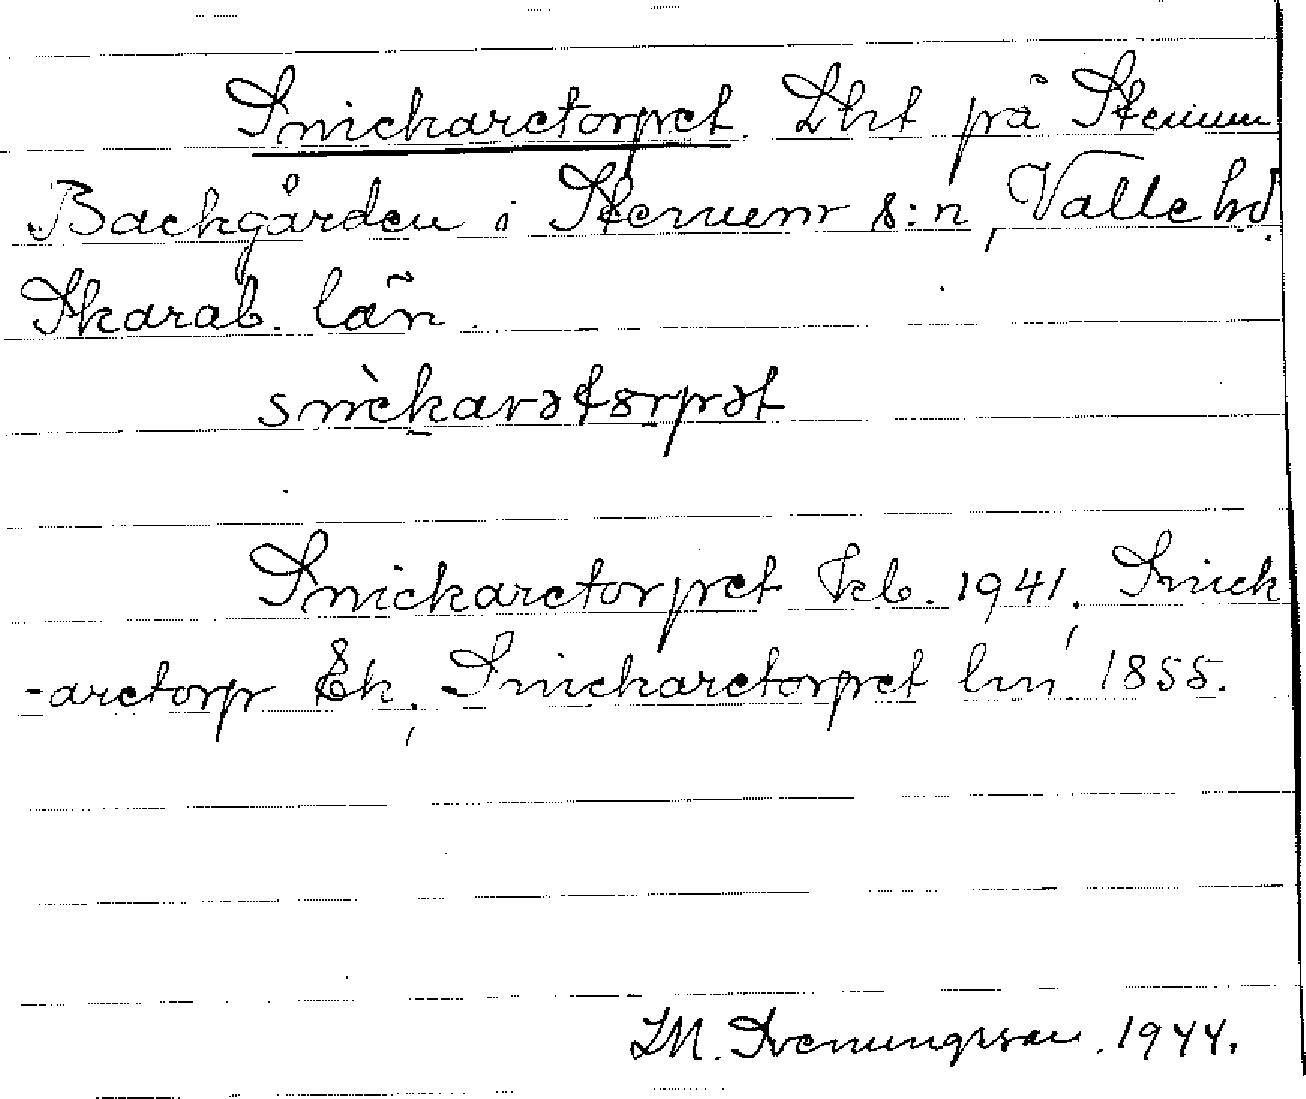 Snickaretorpet. Lht på Stenum
Backgården i Stenums s:n, Valle hd.
Skarab. län.
snickarətorpət
Snickaretorpet kb. 1941, Snick
-aretorp Ek, Snickaretorpet lm 1855.
LM. Svenungsson. 1944.